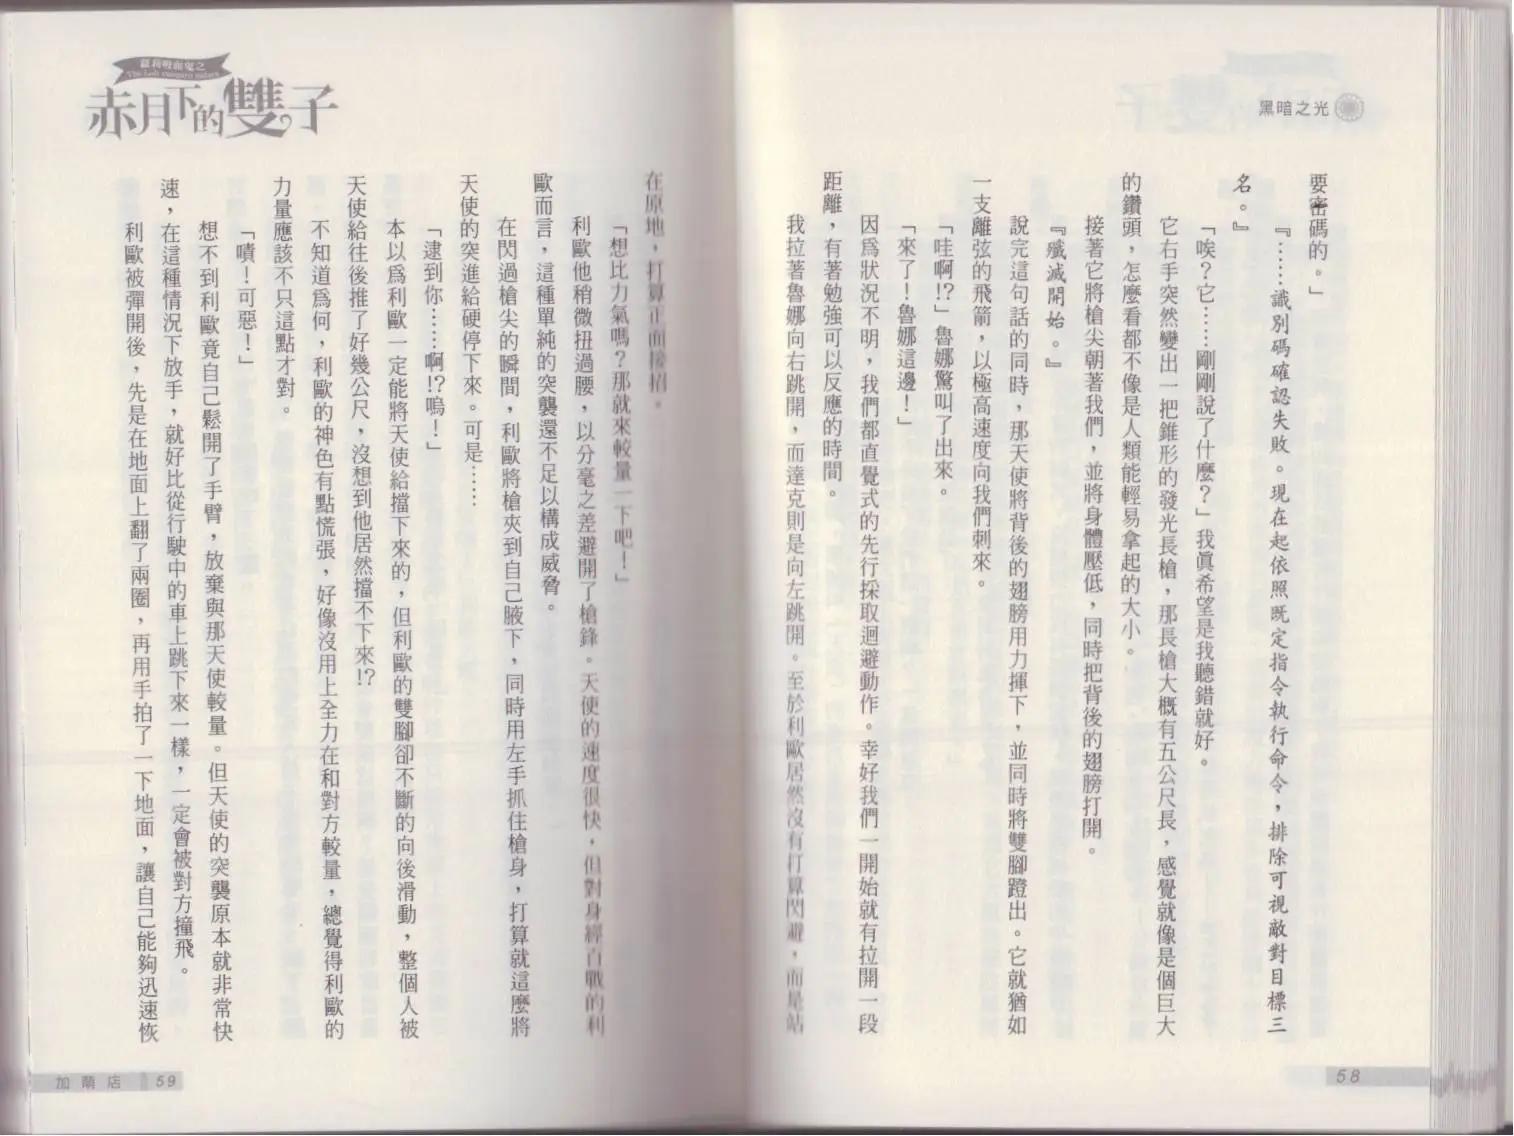 黑暗之光
要密碼的。」
『……識別碼確認失敗。現在起依照既定指令執行命令，排除可視敵對目標三
名。』
「唉？它……剛剛說了什麼？」我真希望是我聽錯就好。
它右手突然變出一把錐形的發光長槍，那長槍大概有五公尺長，感覺就像是個巨大
的鑽頭，怎麼看都不像是人類能輕易拿起的大小。
接著它將槍尖朝著我們，並將身體壓低，同時把背後的翅膀打開。
『殲滅開始。』
說完這句話的同時，那天使將背後的翅膀用力揮下，並同時將雙腳蹬出。它就猶如
一支離弦的飛箭，以極高速度向我們刺來。
「哇啊!?」魯娜驚叫了出來。
「來了！魯娜這邊！」
因為狀況不明，我們都直覺式的先行採取迴避動作。幸好我們一開始就有拉開一段
距離，有著勉強可以反應的時間。
我拉著魯娜向右跳開，而達克則是向左跳開。至於利歐居然沒有打算閃避，而是站
58
蘿莉吸血鬼之
赤月下的雙子
在原地，打算正面接招。
「想比力氣嗎？那就來較量一下吧！」
利歐他稍微扭過腰，以分毫之差避開了槍鋒。天使的速度很快，但對身經百戰的利
歐而言，這種單純的突襲還不足以構成威脅。
在閃過槍尖的瞬間，利歐將槍夾到自己腋下，同時用左手抓住槍身，打算就這麼將
天使的突進給硬停下來。可是……
「逮到你……啊!?嗚！」
本以為利歐一定能將天使給擋下來的，但利歐的雙腳卻不斷的向後滑動，整個人被
天使給往後推了好幾公尺，沒想到他居然擋不下來!?
不知道為何，利歐的神色有點慌張，好像沒用上全力在和對方較量，總覺得利歐的
力量應該不只這點才對。
「嘖！可惡！」
想不到利歐竟自己鬆開了手臂，放棄與那天使較量。但天使的突襲原本就非常快
速，在這種情況下放手，就好比從行駛中的車上跳下來一樣，一定會被對方撞飛。
利歐被彈開後，先是在地面上翻了兩圈，再用手拍了一下地面，讓自己能夠迅速恢
加萌店 59